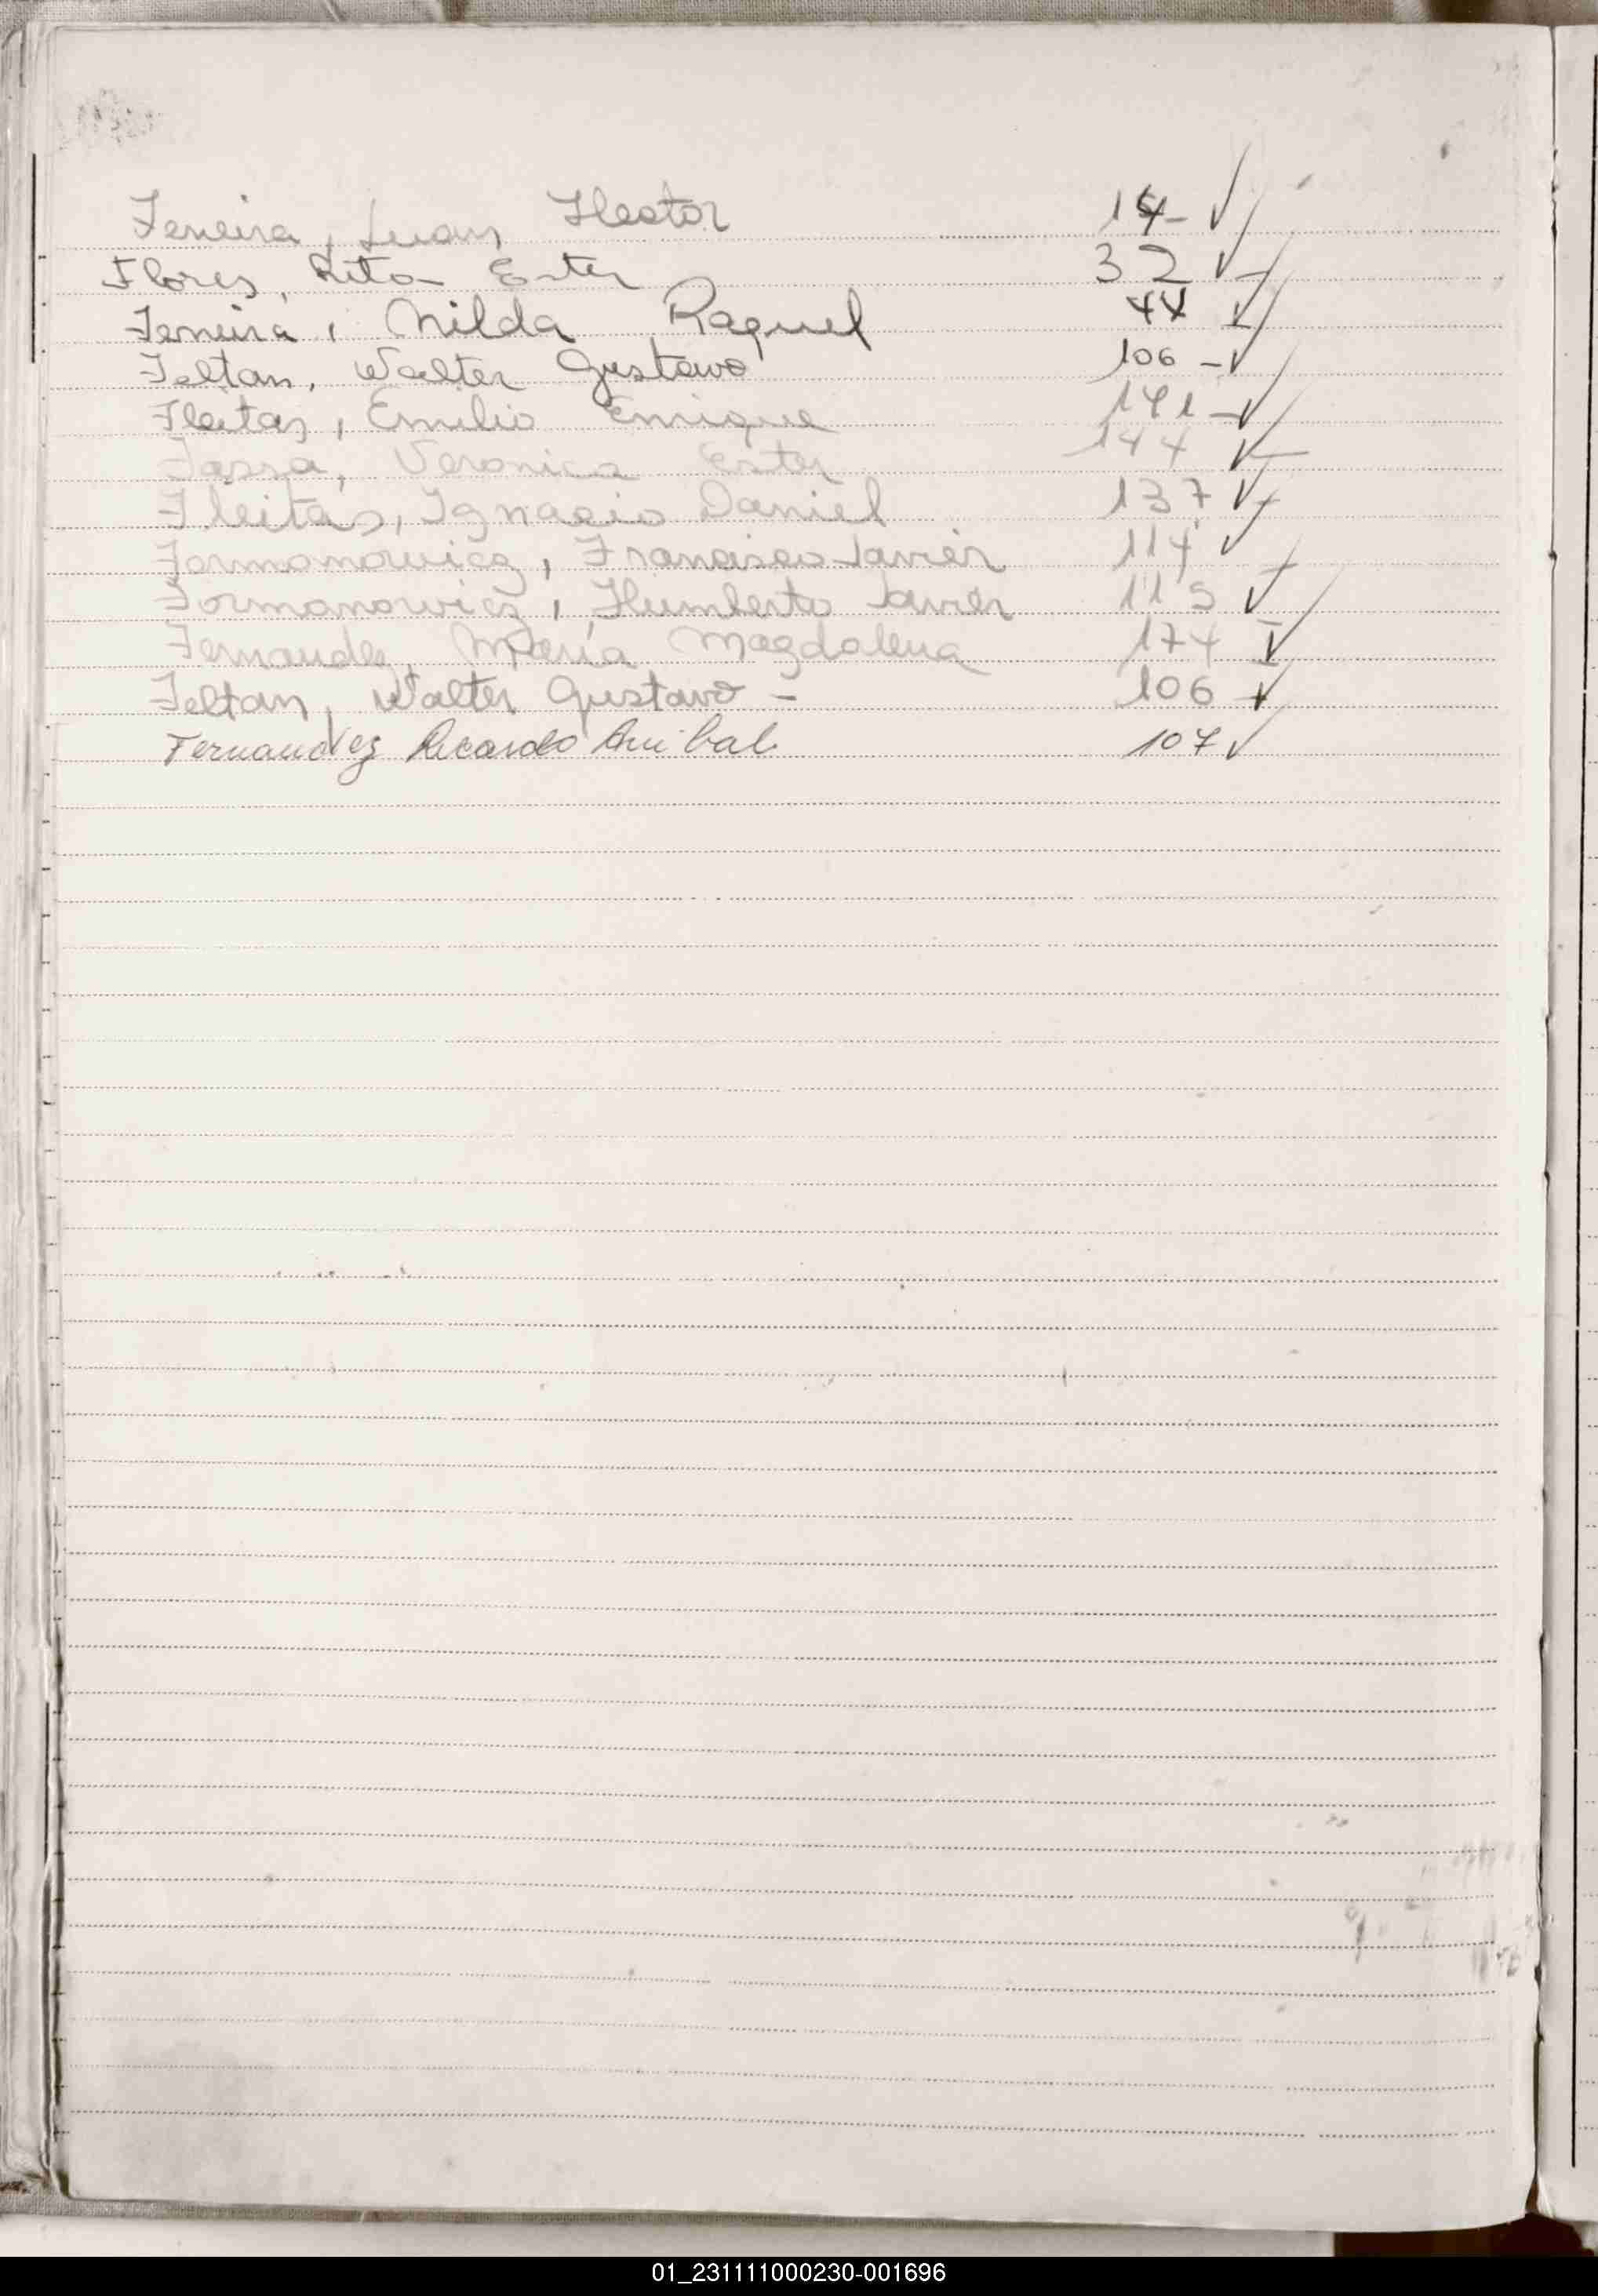 Ferreira, Juan Hector 14- ✓
Flores, Rita Ester 32 ✓
Ferreira, Nilda Raquel 44 ✓
Feltan, Walter Gustavo 106 - ✓
Fleitas, Emilio Enrique 141 - ✓
Fassa, Veronica Ester 144 ✓
Fleitas, Ignacio Daniel 137 ✓
Formanowicz, Francisco Javier 114 ✓
Formanowicz, Humberto Javier 115 ✓
Fernandez, María Magdalena 174 ✓
Feltan, Walter Gustavo - 106 ✓
Fernandez Ricardo Anibal 107 ✓
01_231111000230-001696